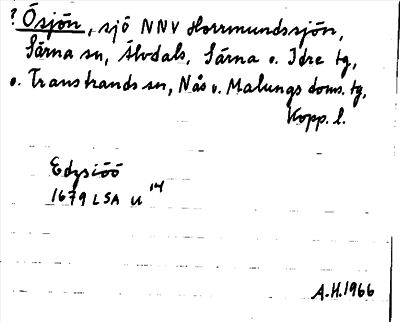 ? Ösjön, sjö NNV Horrmundssjön,
Särna sn, Älvdals, Särna o. Idre tg,
o. Transtrands sn, Nås o. Malungs doms. tg,
Kopp. l.
Edzsiöö
1679 LSA U 14
A.H. 1966